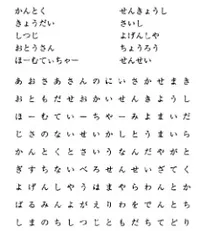 かんとく せんきょうし
きょうだい さいし
しつじ よげんしゃ
おとうさん ちょうろう
ほーむてぃーちゃー せんせい
あおさあさんのにいさかせまき
おともだせおかいせんきようし
ほーむていーちゃーみよまいだ
じさのないせいかしとうまいら
かんとくとさいうなんだやがと
ぎすちないべろせんせいざてく
よげんしやうはまやらわんとか
ばるみんよがえりわをでんとち
しまのちしつじともだちてどり